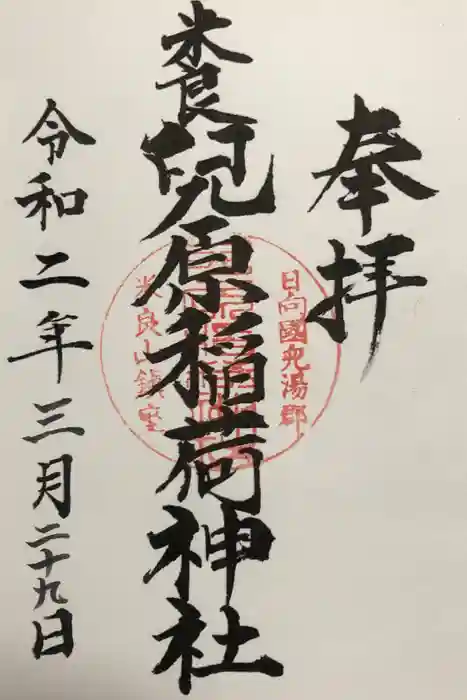 奉拝
日向國兒湯郡
米良兒原稲荷神社
米良山鎮座
令和二年三月二十九日